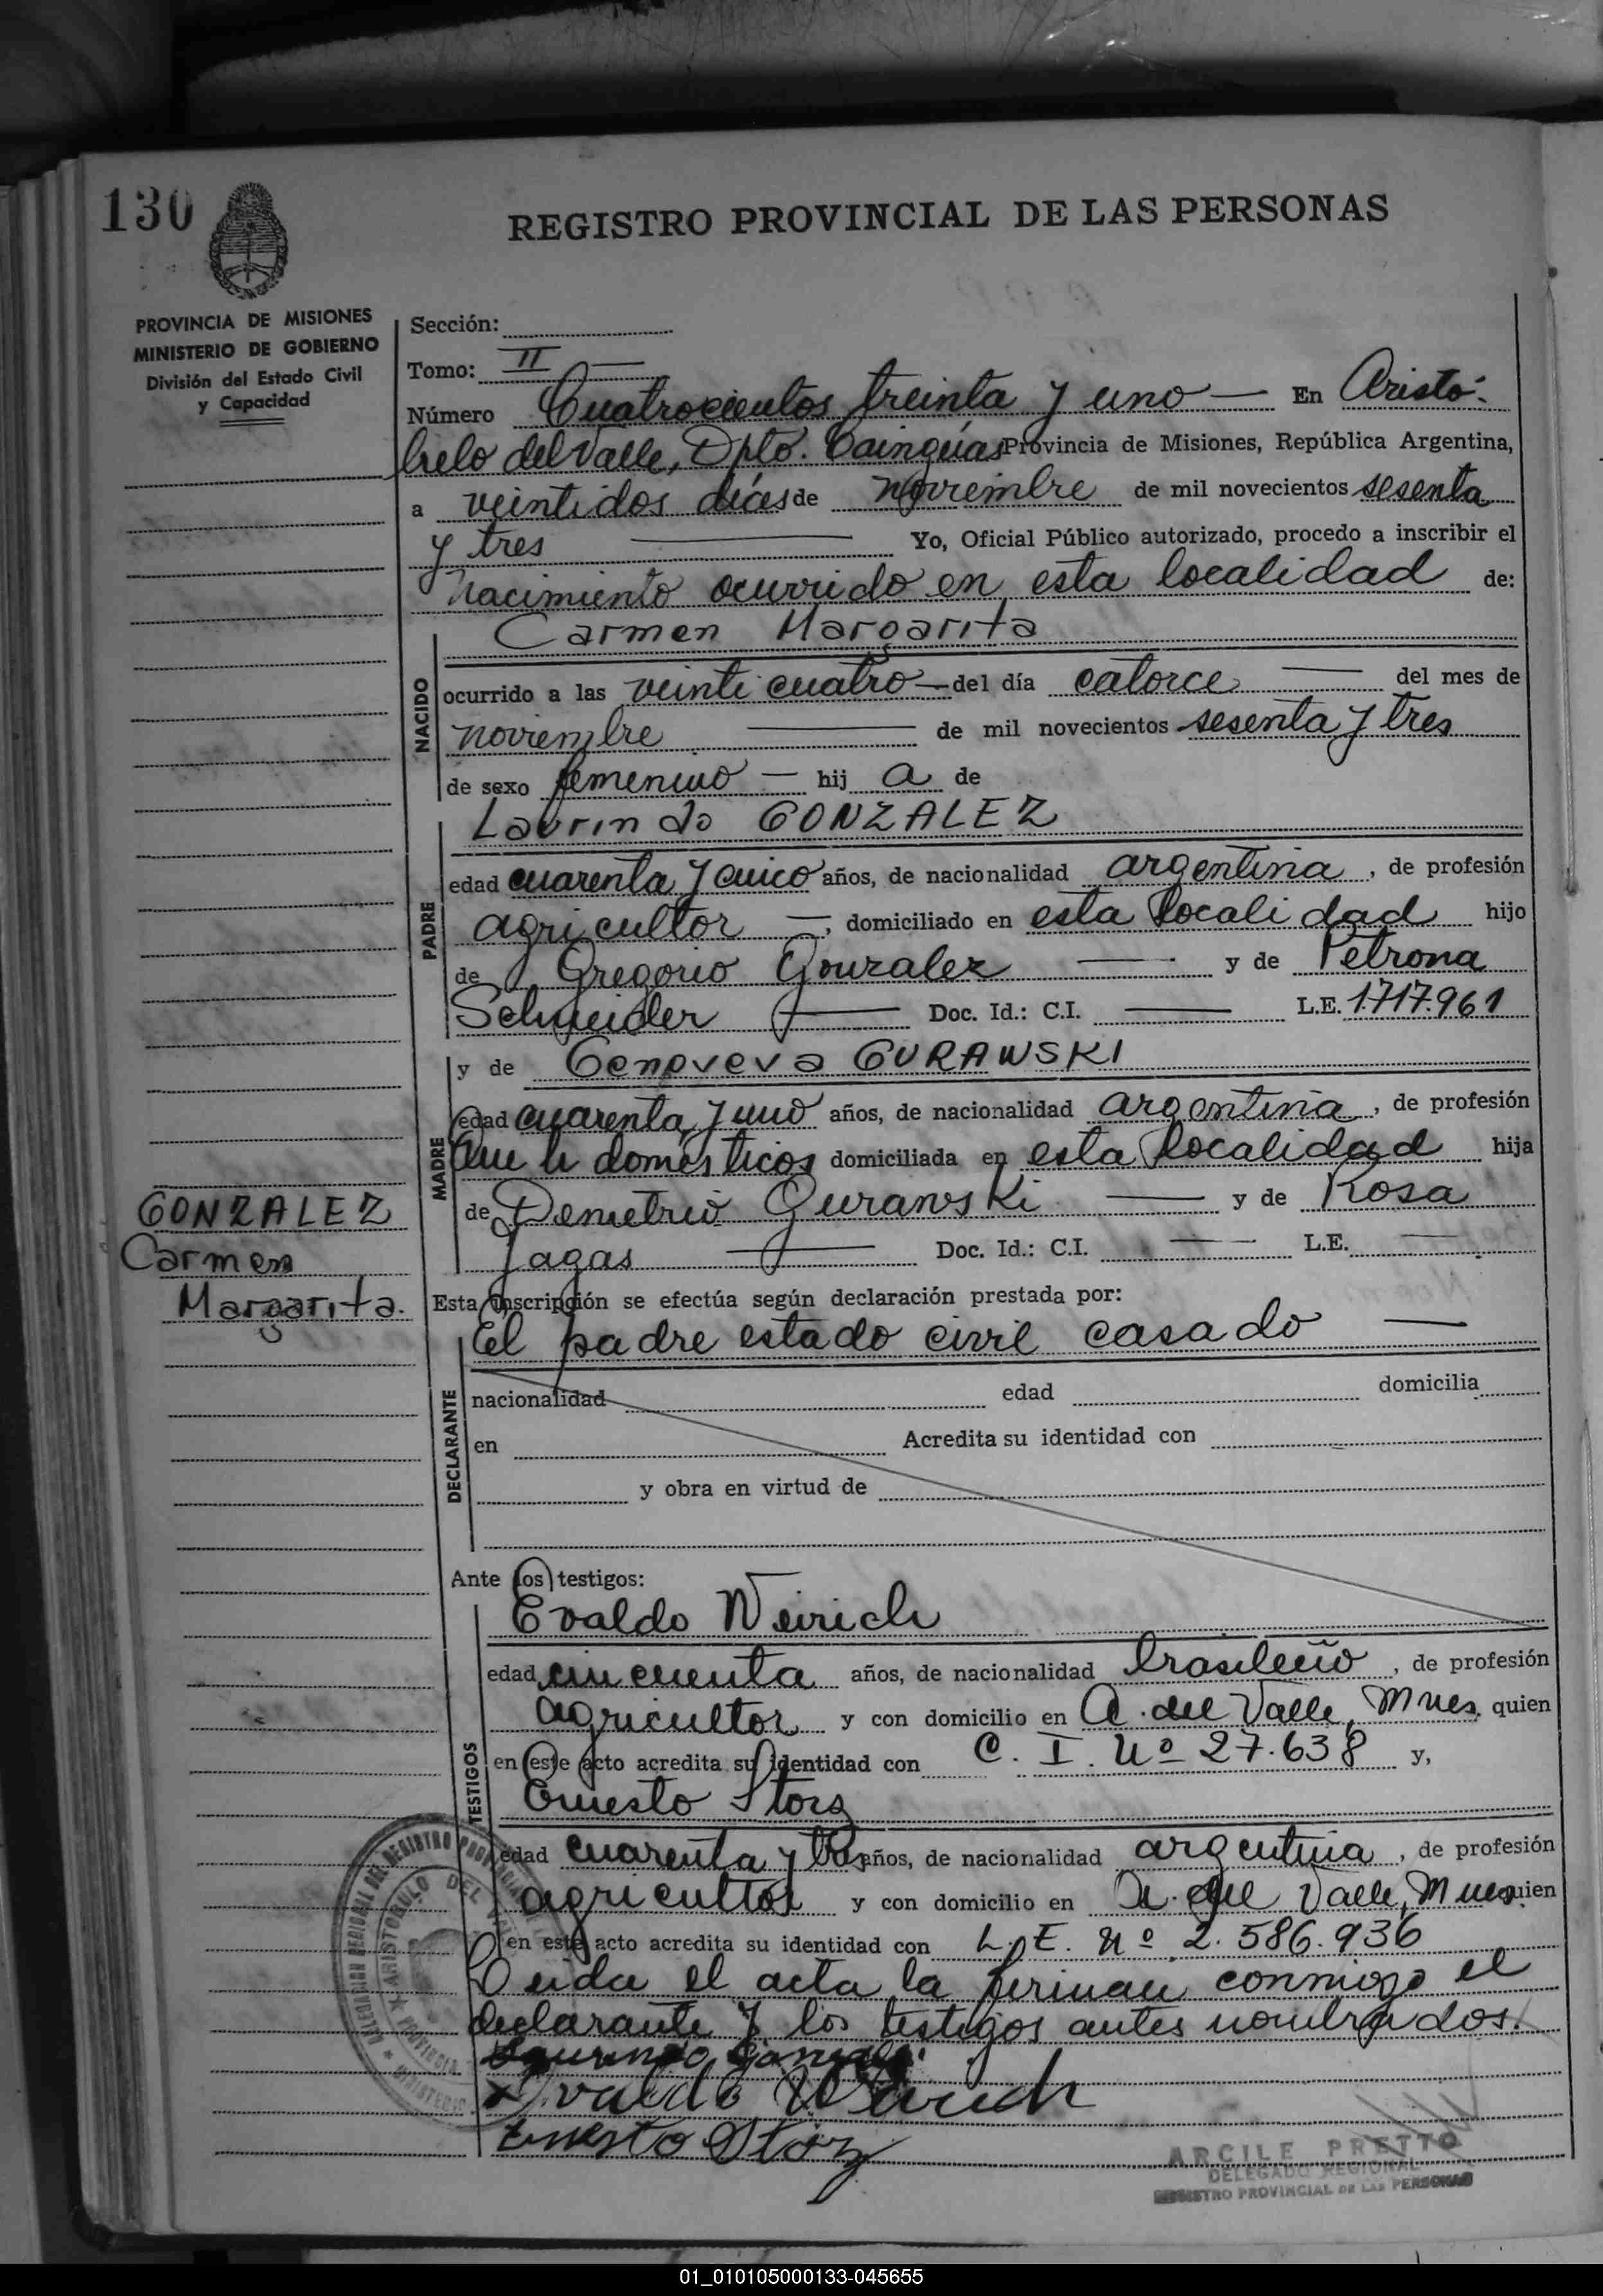 130
REGISTRO PROVINCIAL DE LAS PERSONAS
PROVINCIA DE MISIONES
MINISTERIO DE GOBIERNO
División del Estado Civil
y Capacidad
Sección:
Tomo: II
Número Cuatrocientos treinta y uno — En Aristó-
bulo del Valle, Dpto. Cainguás Provincia de Misiones, República Argentina,
a veintidos días de noviembre de mil novecientos sesenta
y tres — Yo, Oficial Público autorizado, procedo a inscribir el
nacimiento ocurrido en esta localidad de:
NACIDO
Carmen Margarita
ocurrido a las veinticuatro — del día catorce — del mes de
noviembre — de mil novecientos sesenta y tres
de sexo femenino — hij a de
PADRE
Laurindo GONZALEZ
edad cuarenta y cinco años, de nacionalidad argentina, de profesión
agricultor —, domiciliado en esta localidad hijo
de Gregorio Gonzalez — y de Petrona
Schneider — Doc. Id.: C.I. — L.E. 1.717.961
MADRE
y de Genoveva GURAWSKI
edad cuarenta y uno años, de nacionalidad argentina, de profesión
domésticos domiciliada en esta localidad hija
de Demetrio Gurawski — y de Rosa
Jagas — Doc. Id.: C.I. — L.E. —
GONZALEZ
Carmen
Margarita.
Esta inscripción se efectúa según declaración prestada por:
DECLARANTE
El padre estado civil casado —
nacionalidad edad domicilia
en Acredita su identidad con
y obra en virtud de
Ante los testigos:
TESTIGOS
Evaldo Weirich
edad cincuenta años, de nacionalidad brasileño, de profesión
agricultor y con domicilio en A. del Valle, Mnes. quien
en este acto acredita su identidad con C. I. Nº 27.638 y,
Ernesto Storz
edad cuarenta y tres años, de nacionalidad argentina, de profesión
agricultor y con domicilio en A. del Valle, Mnes. quien
en este acto acredita su identidad con L. E. Nº 2.586.936
Leida el acta la firman conmigo el
declarante y los testigos antes nombrados.
Laurindo Gonzalez
Evaldo Weirich
Ernesto Storz
ARCILE PRETTO
DELEGADO REGIONAL
REGISTRO PROVINCIAL DE LAS PERSONAS
01_010105000133-045655